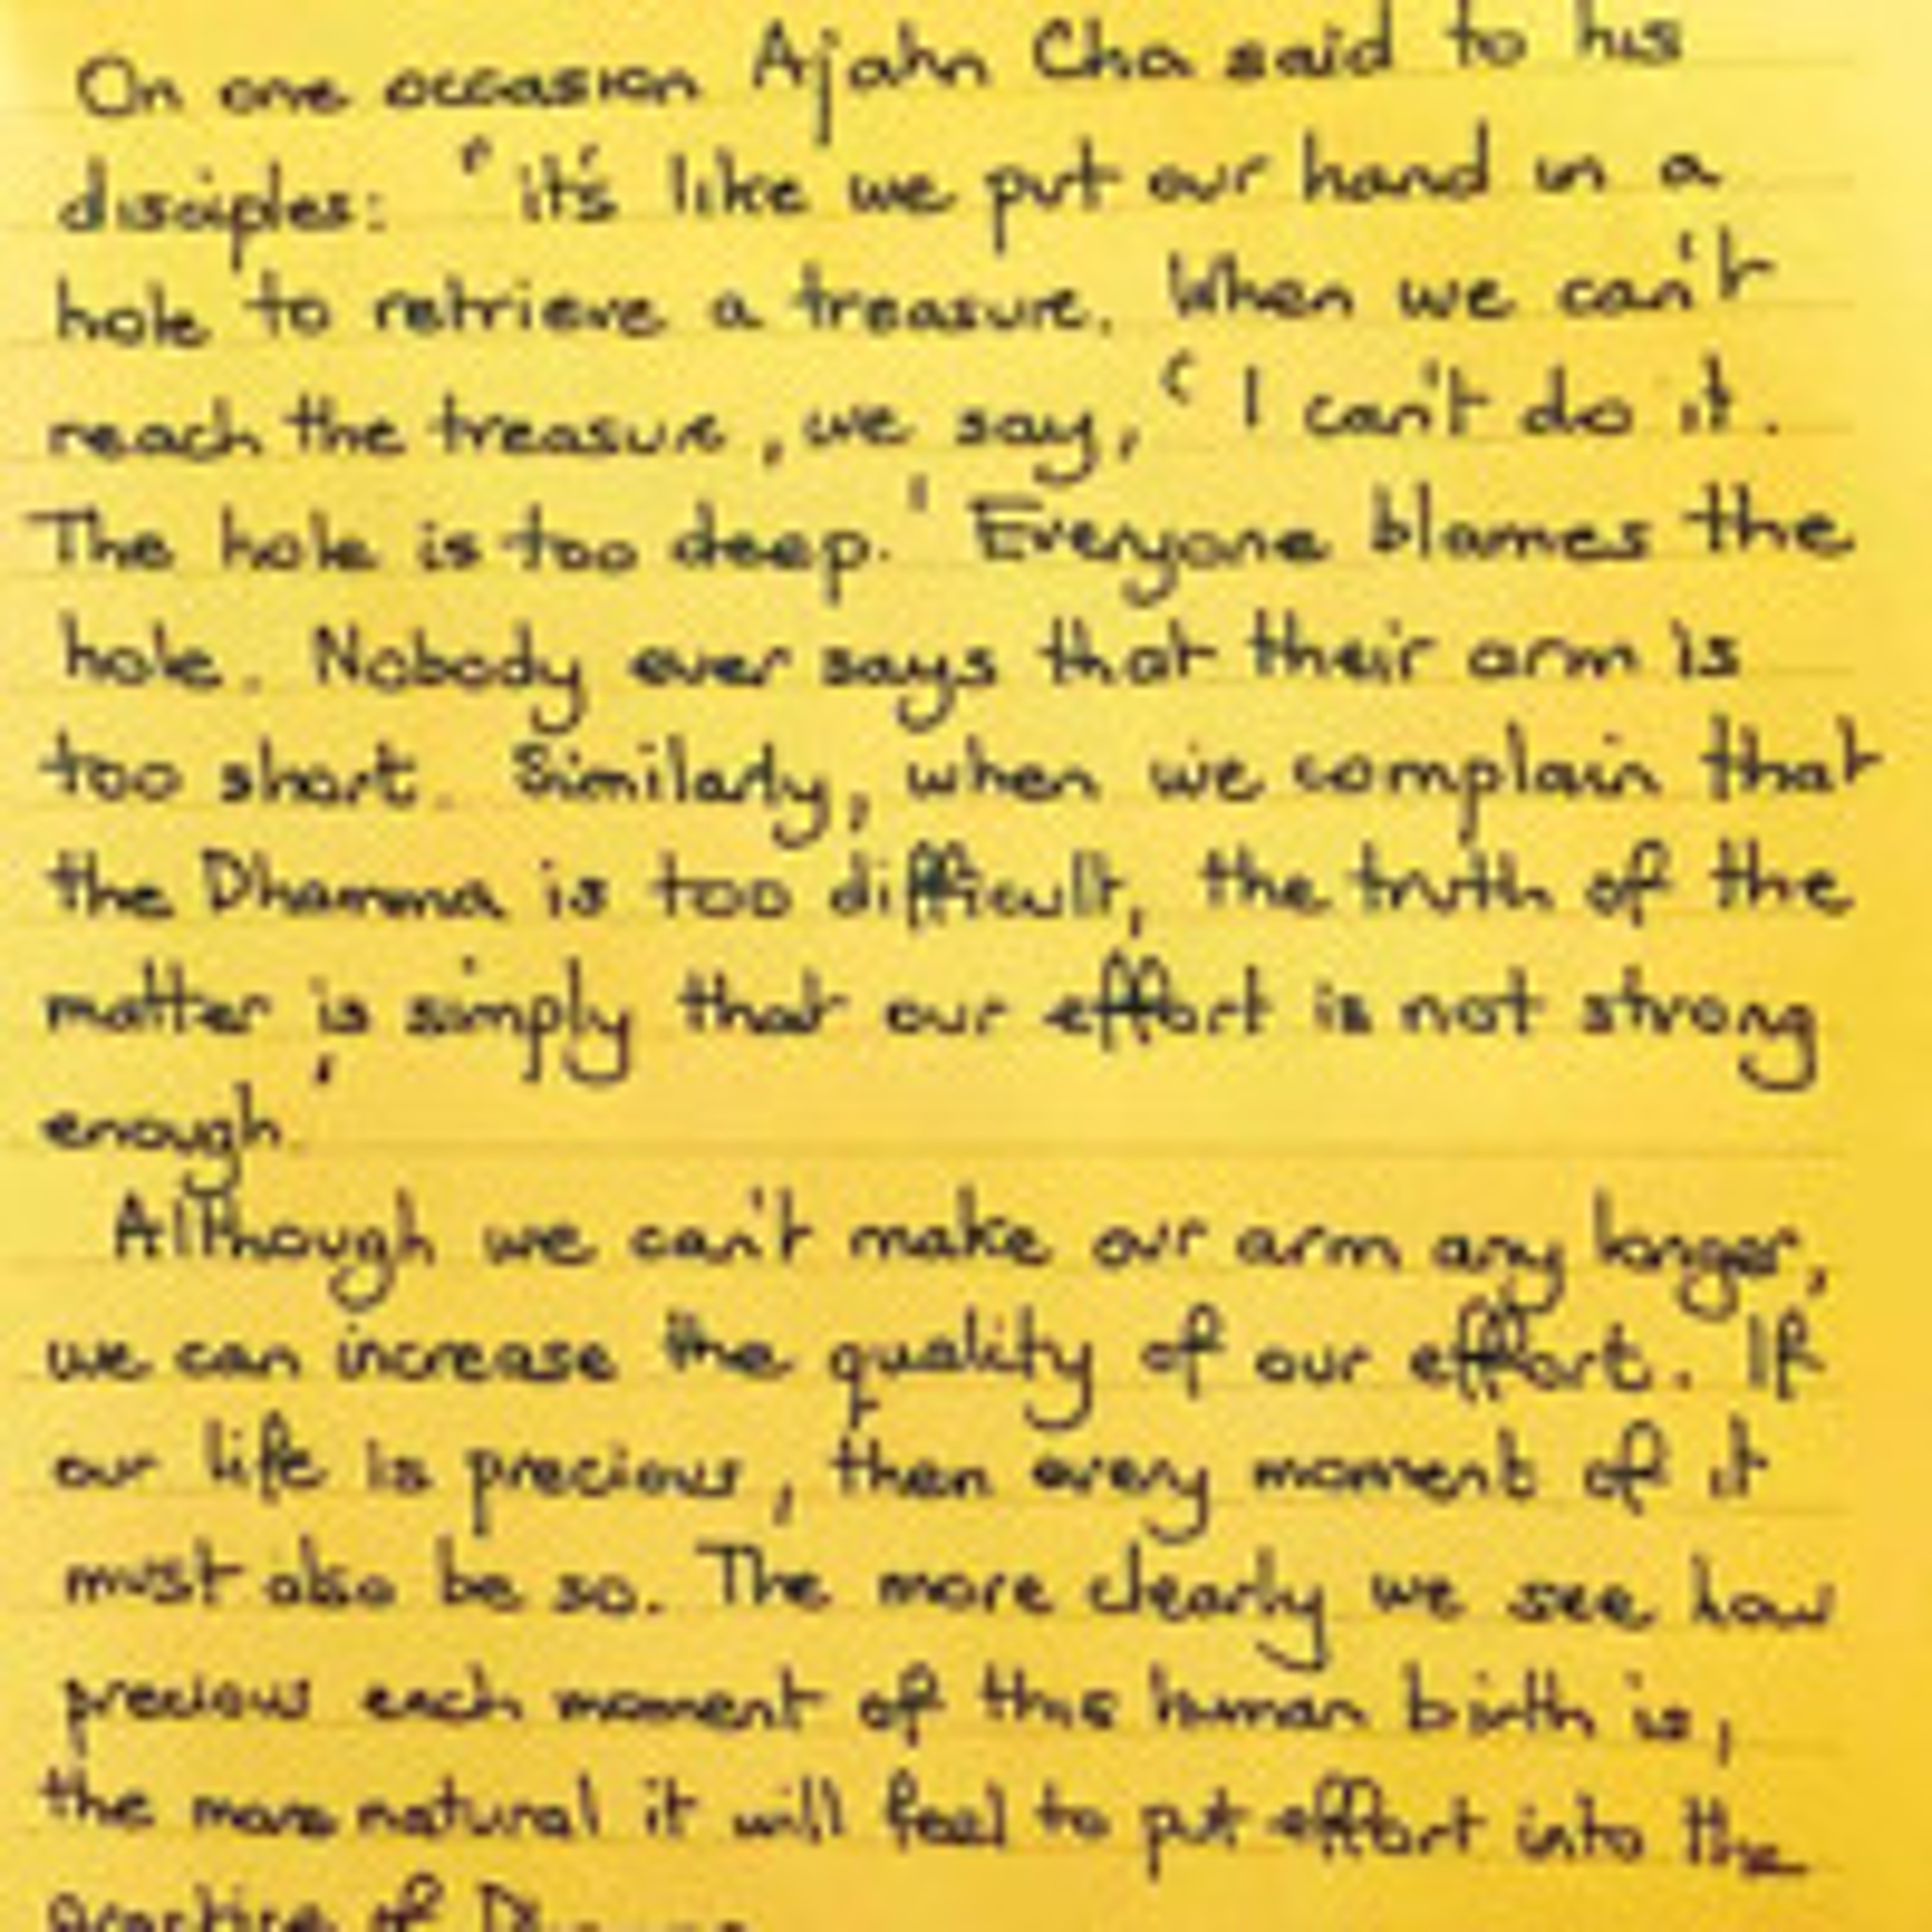 On one occasion Ajahn Cha said to his
disciples: "it's like we put our hand in a
hole to retrieve a treasure. When we can't
reach the treasure, we say, ‘I can't do it.
The hole is too deep.' Everyone blames the
hole. Nobody ever says that their arm is
too short. Similarly, when we complain that
the Dhamma is too difficult, the truth of the
matter is simply that our effort is not strong
enough.'
Although we can't make our arm any longer,
we can increase the quality of our effort. If
our life is precious, then every moment of it
must also be so. The more clearly we see how
precious each moment of this human birth is,
the more natural it will feel to put effort into the
practice of